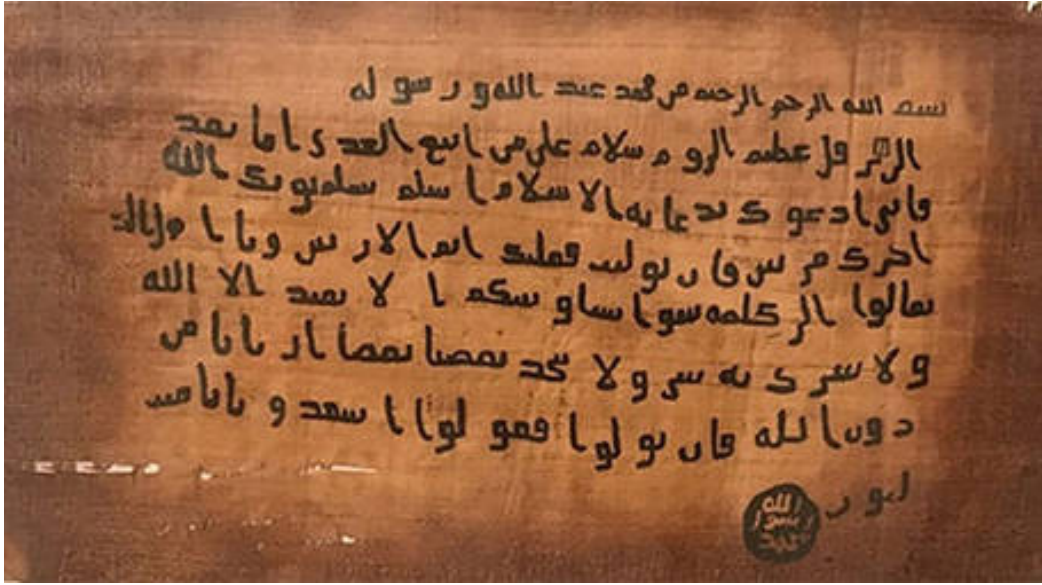 بسم الله الرحمن الرحيم من محمد عبد الله و رسوله
الى هرقل عظيم الروم سلام على من اتبع الهدى اما بعد
فاني ادعوك بدعاية الاسلام اسلم تسلم يوتك الله
اجرك مرتين فان توليت فعليك اثم الاريسين ويا اهل
تعالوا الى كلمة سوا بيننا وبينكم ا لا نعبد الا الله
ولا نشرك به شي ولا يتخذ بعضنا بعضا اربابا من
دون الله فان تولوا فقولوا اشهدو بانا
الله
رسول
محمد